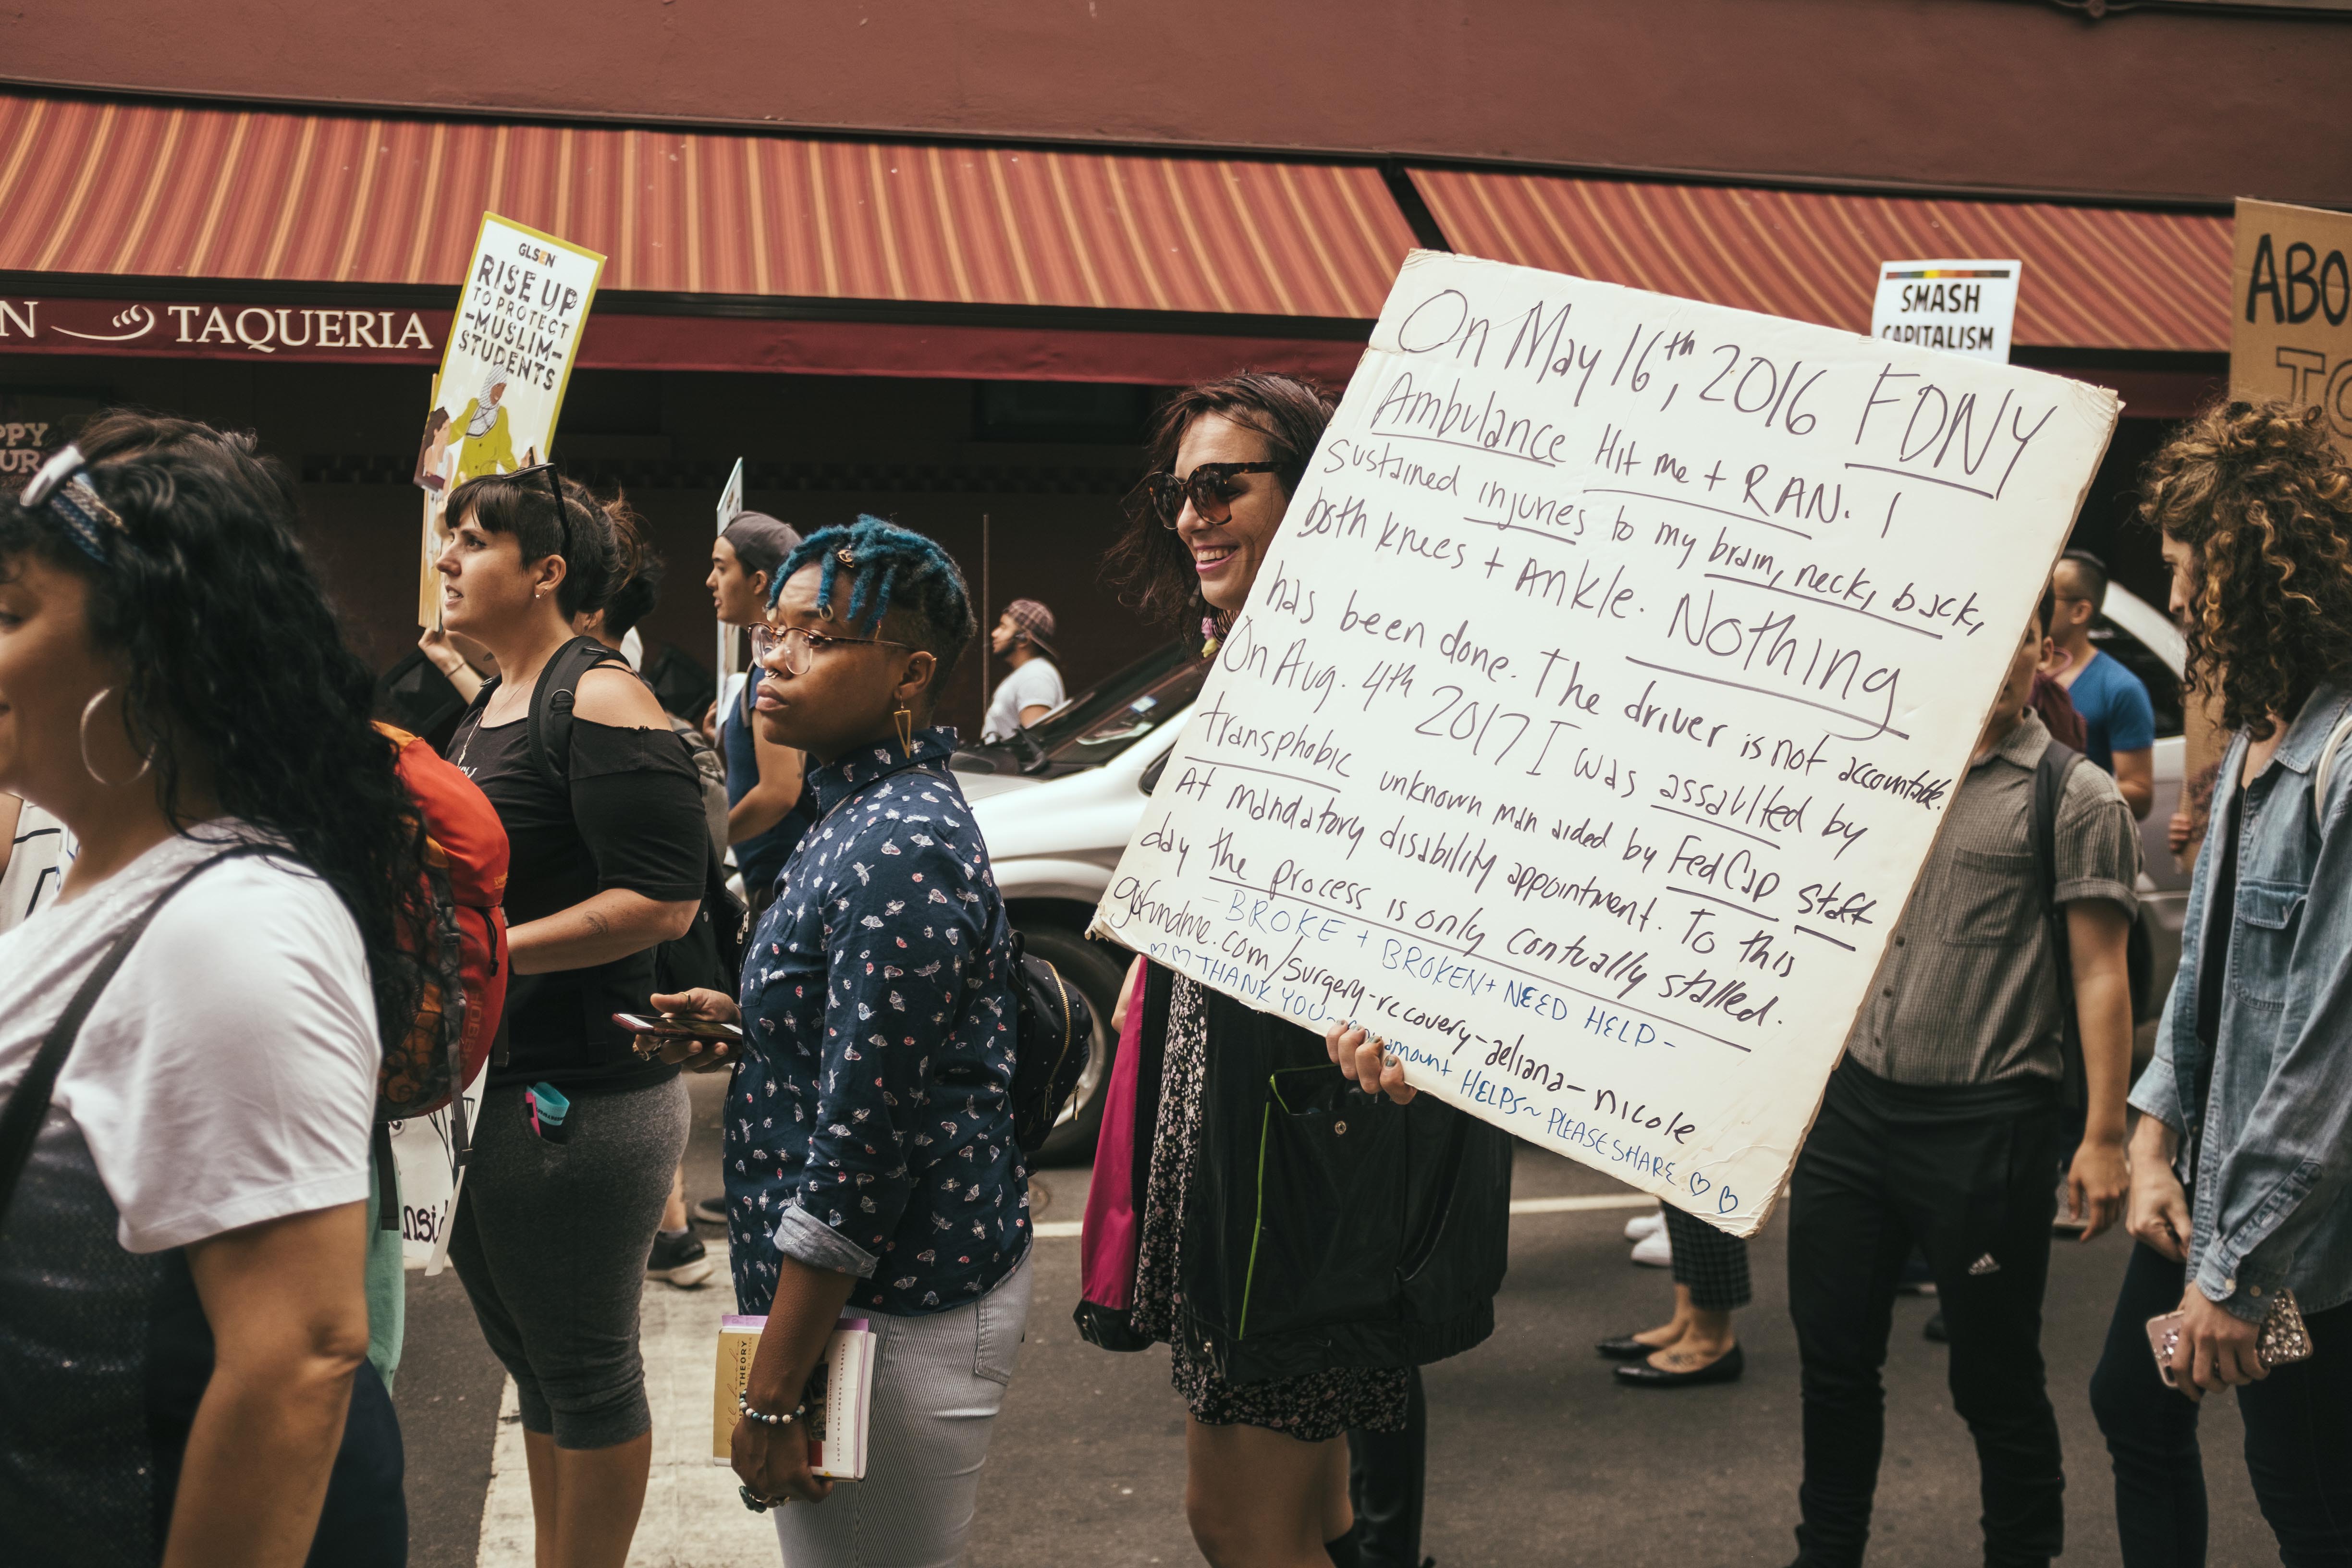 N TAQUERIA
PPY
UR
GLSEN
RISE UP
TO PROTECT
-MUSLIM-
STUDENTS
SMASH
CAPITALISM
ABO
TO
On May 16th, 2016 FDNY
Ambulance Hit me + RAN. I
sustained injuries to my brain, neck, back,
both knees + Ankle. Nothing
has been done. The driver is not accountable.
On Aug. 4th 2017 I was assaulted by
transphobic unknown man aided by FedCap Staff
At mandatory disability appointment. To this
day the process is only contually stalled.
- BROKE + BROKEN + NEED HELP -
gofundme.com/surgery-recovery-aeliana-nicole
♡♡ THANK YOU~ amount HELPS~ PLEASE SHARE ♡♡
THEORY
nsid